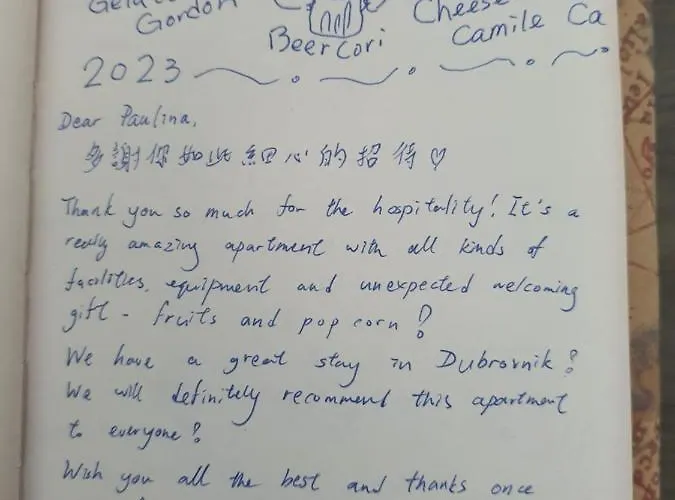 Gordon
Cheese
BeerCori
Camile Ca
2023
Dear Paulina,
多謝你如此細心的招待♡
Thank you so much for the hospitality! It's a
really amazing apartment with all kinds of
facilities, equipment and unexpected welcoming
gift - fruits and pop corn!
We have a great stay in Dubrovnik!
We will definitely recommend this apartment
to everyone!
Wish you all the best and thanks once